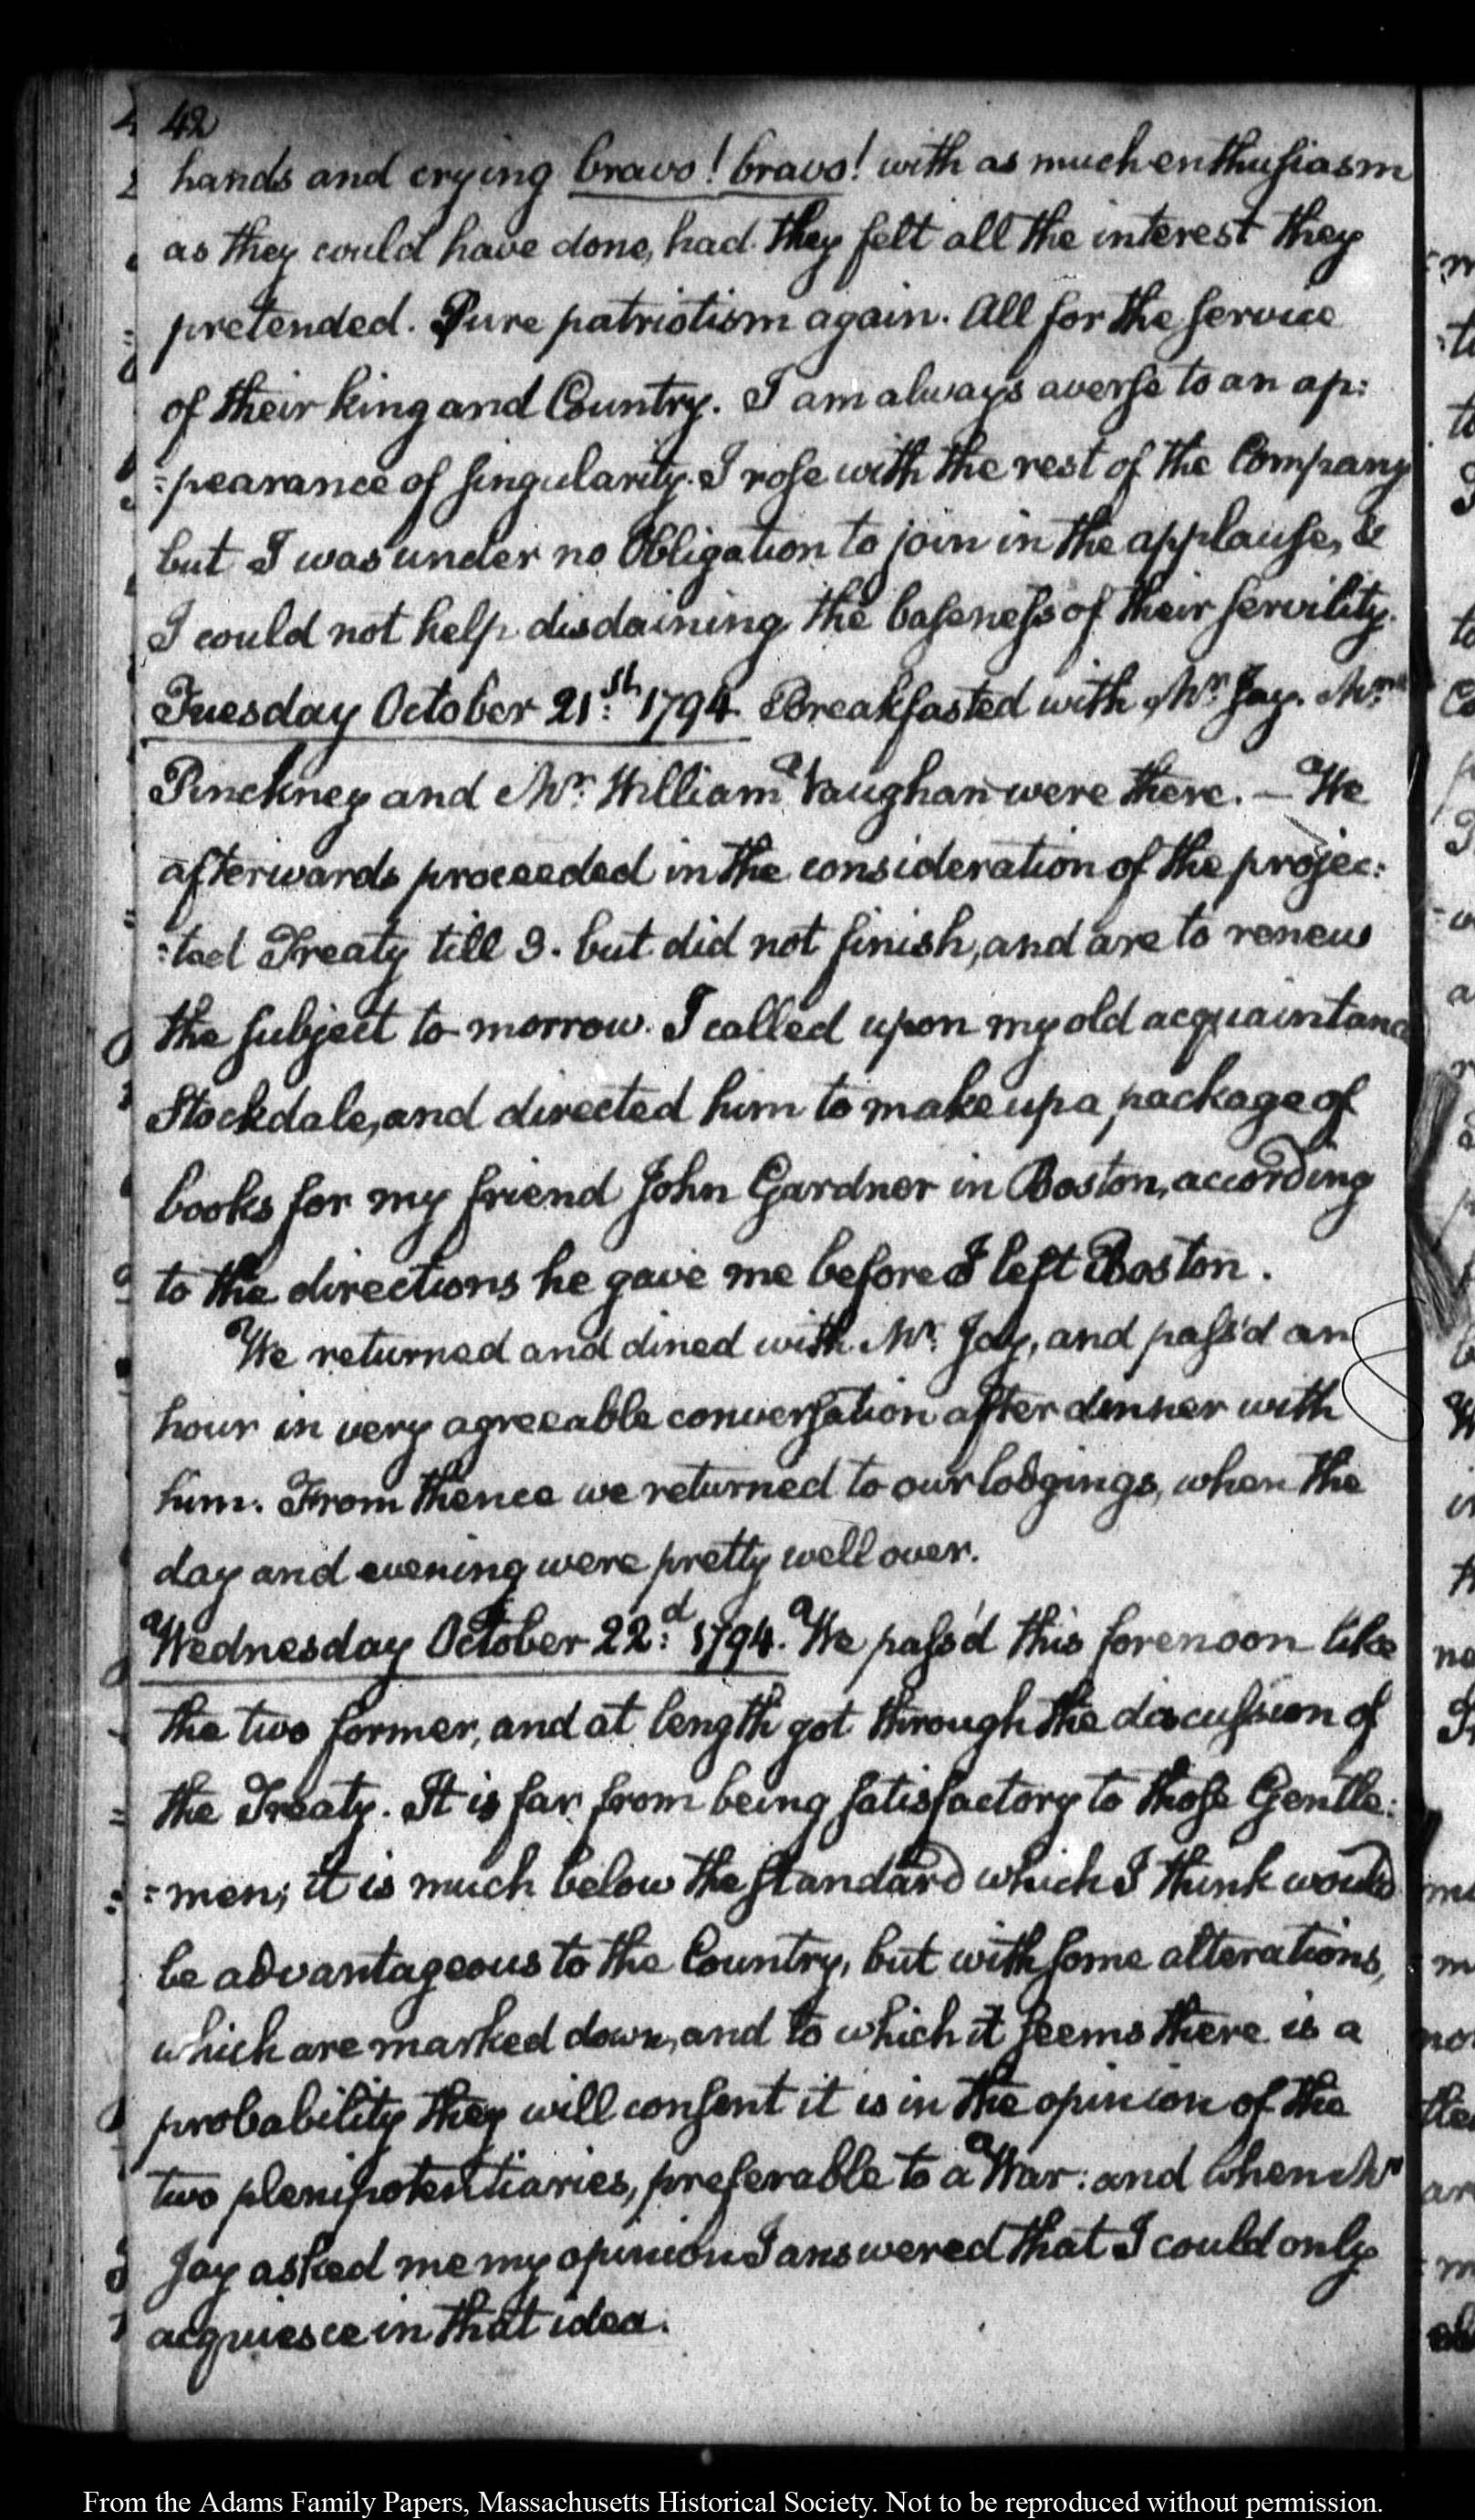 42
hands and crying bravo! bravo! with as much enthusiasm
as they could have done, had they felt all the interest they
pretended. Pure patriotism again. All for the service
of their king and Country. I am always averse to an ap:
:pearance of singularity. I rose with the rest of the Company
but I was under no Obligation to join in the applause, &
I could not help disdaining the baseness of their servility.
Tuesday October 21.st 1794. Breakfasted with Mr. Jay. Mr.
Pinckney and Mr. William Vaughan were there. — We
afterwards proceeded in the consideration of the projec:
:ted Treaty till 3. but did not finish, and are to renew
the subject to-morrow. I called upon my old acquaintanc
Stockdale, and directed him to make up a package of
books for my friend John Gardner in Boston, according
to the directions he gave me before I left Boston.
We returned and dined with Mr. Jay, and pass'd an
hour in very agreeable conversation after dinner with
him. From thence we returned to our lodgings, when the
day and evening were pretty well over.
Wednesday October 22.d 1794. We pass'd this forenoon like
the two former, and at length got through the discussion of
the Treaty. It is far from being satisfactory to those Gentle:
:men; it is much below the standard which I think would
be advantageous to the Country, but with some alterations,
which are marked down, and to which it seems there is a
probability they will consent it is in the opinion of the
two plenipotentiaries, preferable to a War: and when Mr
Jay asked me my opinion I answered that I could only
acquiesce in that idea.
From the Adams Family Papers, Massachusetts Historical Society. Not to be reproduced without permission.